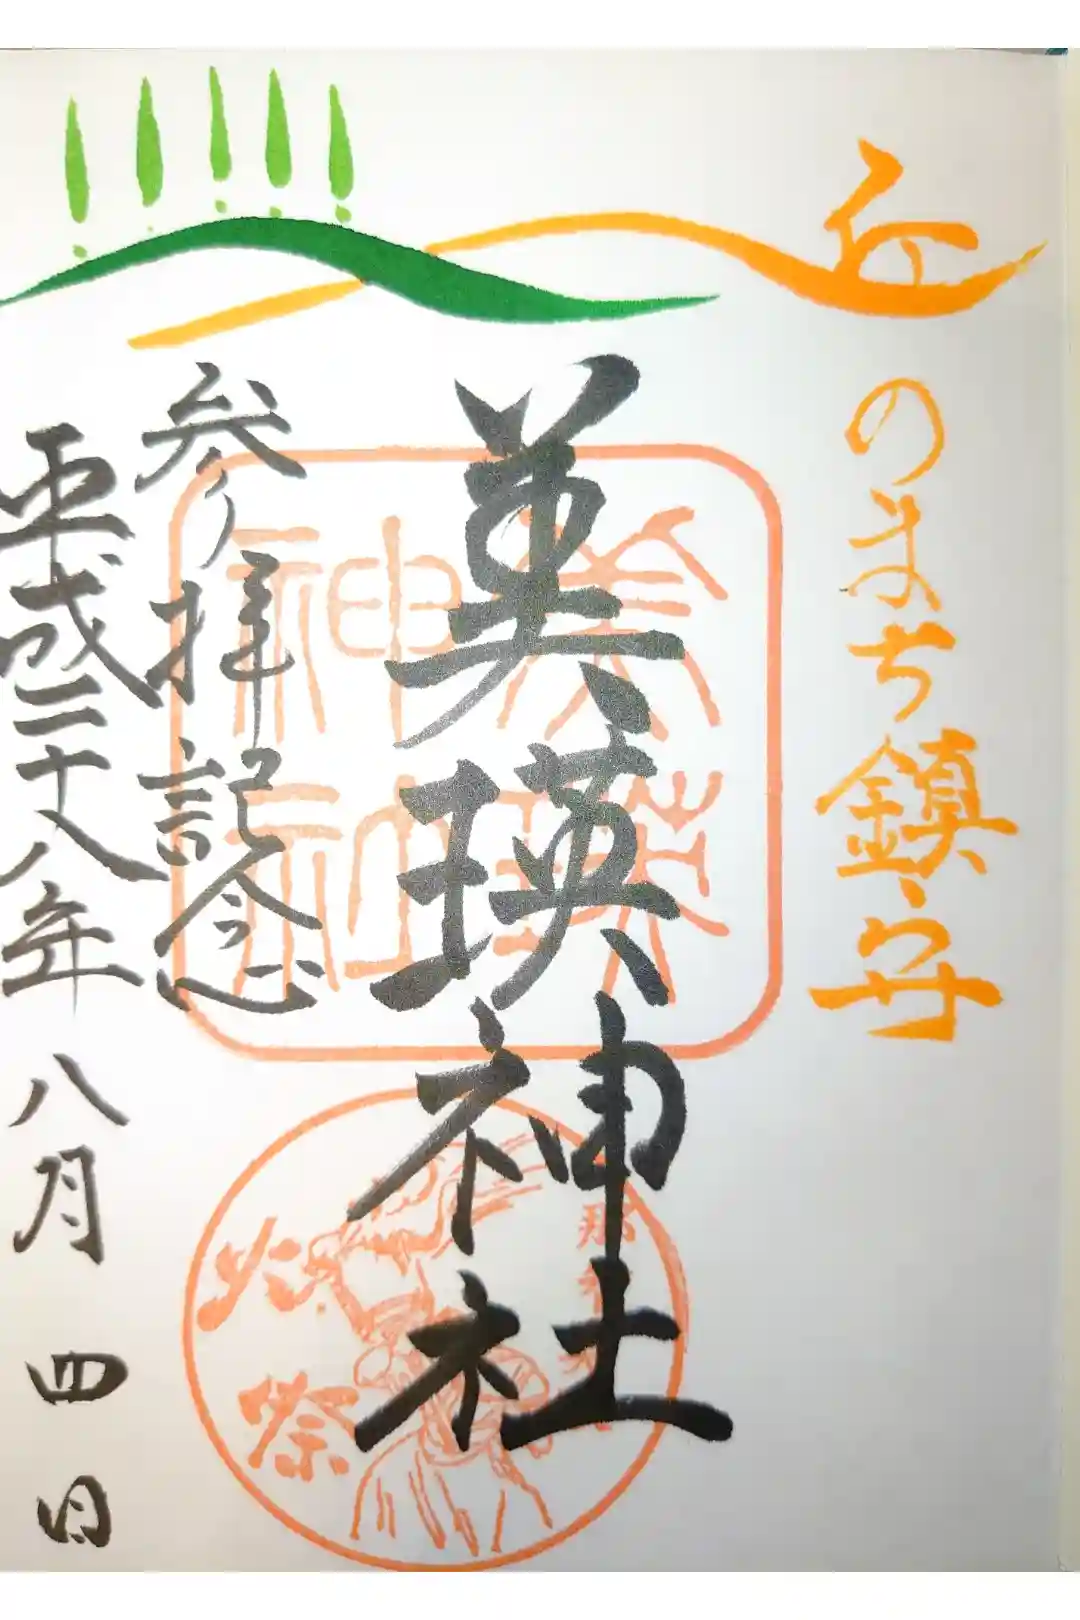 丘のまち鎮守
美瑛神社
参拝記念
平成二十八年八月四日
美瑛
神社
火祭